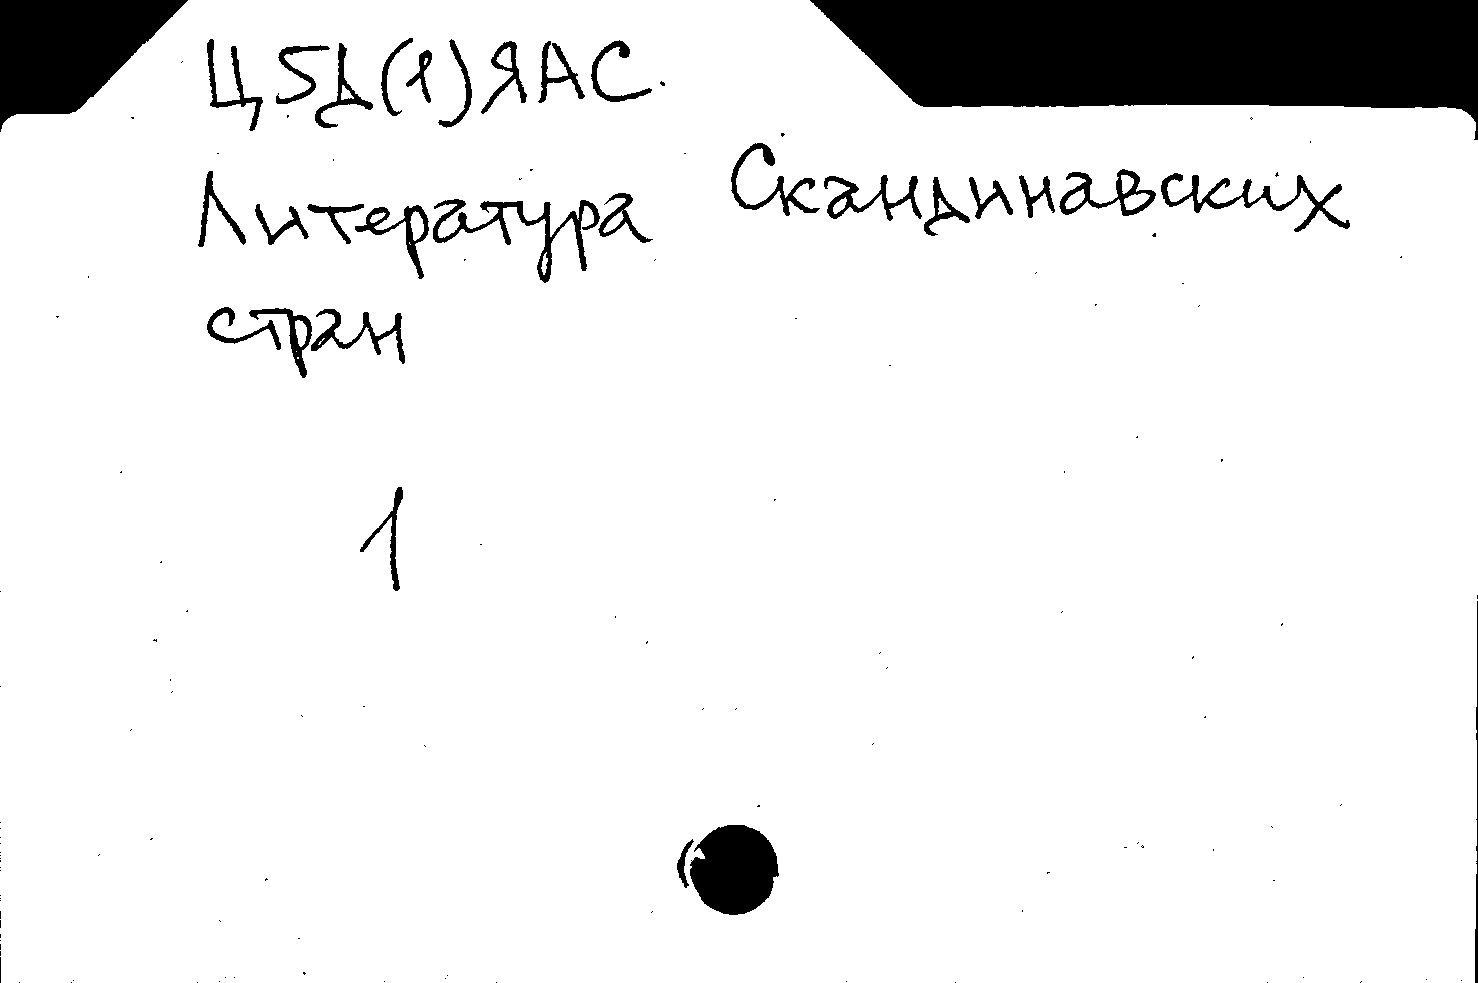 Ц5Д(1)ЯАС.
Литература Скандинавских
стран
1